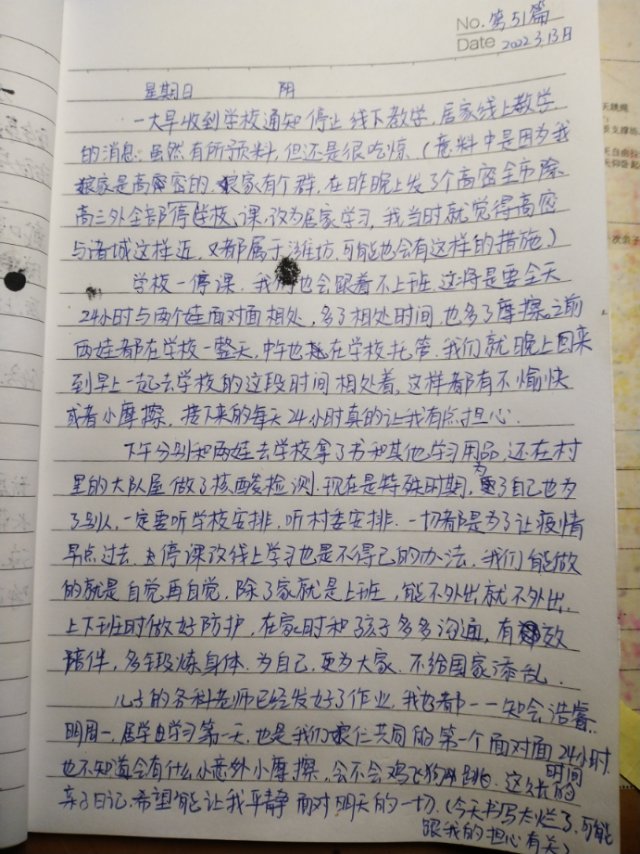 No. 第51篇
Date 2022.3.13日
星期日 阴
一大早收到学校通知停止线下教学，居家线上教学
的消息，虽然有所预料，但还是很吃惊。（意料中是因为我
娘家是高密的，娘家有个群，在昨晚上发了个高密全市除
高三外全部停课，课改为居家学习，我当时就觉得高密
与诸城这样近，又都属于潍坊，可能也会有这样的措施）
学校一停课，我们也会跟着不上班，这将是要全天
24小时与两个娃面对面相处，多了相处时间，也多了摩擦。之前
两娃都在学校一整天，中午也在学校托管，我们就晚上回来
到早上一起去学校的这段时间相处着，这样都有不愉快
或者小摩擦，接下来的每天24小时真的让我有点担心。
下午分别和两娃去学校拿了书和其他学习用品，还在村
里的大队屋做了核酸检测。现在是特殊时期，为了自己也为
了别人，一定要听学校安排，听村委安排，一切都是为了让疫情
早点过去，停课改线上学习也是不得已的办法，我们能做
的就是自觉再自觉，除了家就是上班，能不外出就不外出，
上下班时做好防护，在家时和孩子多多沟通，有效
陪伴，多锻炼身体，为自己，更为大家，不给国家添乱。
儿子的各科老师已经发好了作业，我也都一一知会浩睿，
明周一，居学自学习第一天，也是我们娘仨共同的第一个面对面24小时
时间
也不知道会有什么小意外小摩擦，会不会鸡飞狗跳，这久长的
亲子日记，希望能让我平静面对明天的一切。（今天书写太烂了，可能
跟我的担心有关）